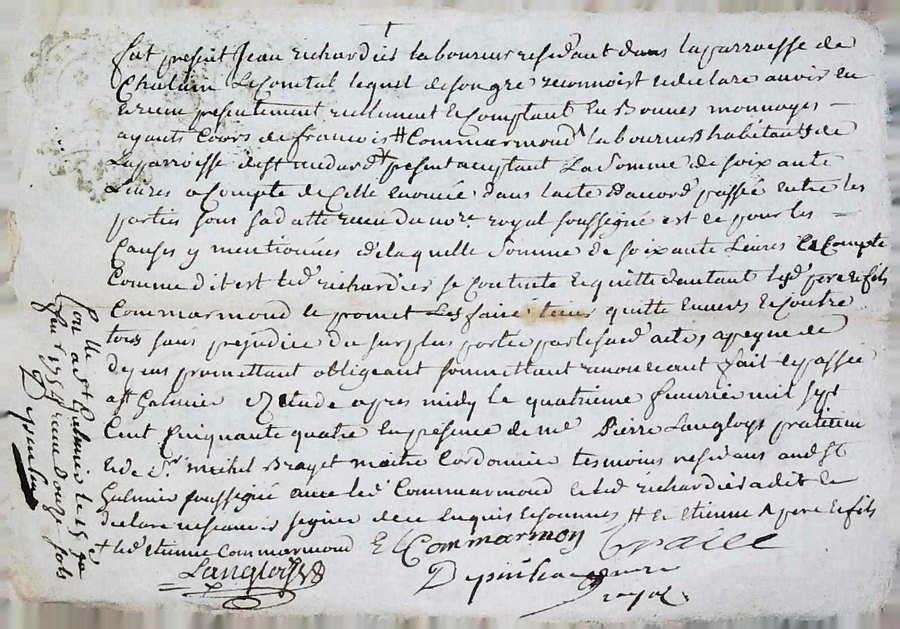 fut présent Jean richardier laboureur residant dans la parroesse de
Chalain Le Comtal lequel de son gré reconnoist et declare avoir eu
et receu presentement reellement et comptant en bonnes monnoyes
ayants Cours de francois # Commarmond laboureurs habitants de
La parroesse present acceptant La somme de soixante
Livres a Compte de Celle enoncée dans l'acte d'accord passée entre les
parties sous sa datte receu du no.re royal soussigné est ce pour les
Causes y mentionnées de laquelle somme de soixante Livres a Compte
Comme dit est led. richardier se Contente et quitte d'autant lesd. pere et fils
Commarmond et promet Les faire tenir quitte envers et Contre
tous sans prejudice du surplus porté par led. acte, a peyne de
depens promettant obligeant soumettant renonceant fait et passé
a st Galmier Etude apres midy le quatrieme fevrier mil sept
Cent Cinquante quatre en presence de me Pierre Langloys praticien
et de sr. michel Brayet maitre Cordonnier tesmoins residans aud st
Galmier soussigné avec led. Commarmond et led. richardier a dit et
declaré ne scavoir signer de ce enquis et sommés # et etienne pere et fils
+ led. etienne Commarmond E Commarmon
Langloys
royal
Con.lle a st Galmier le 15 fe
1754 receu douze sols